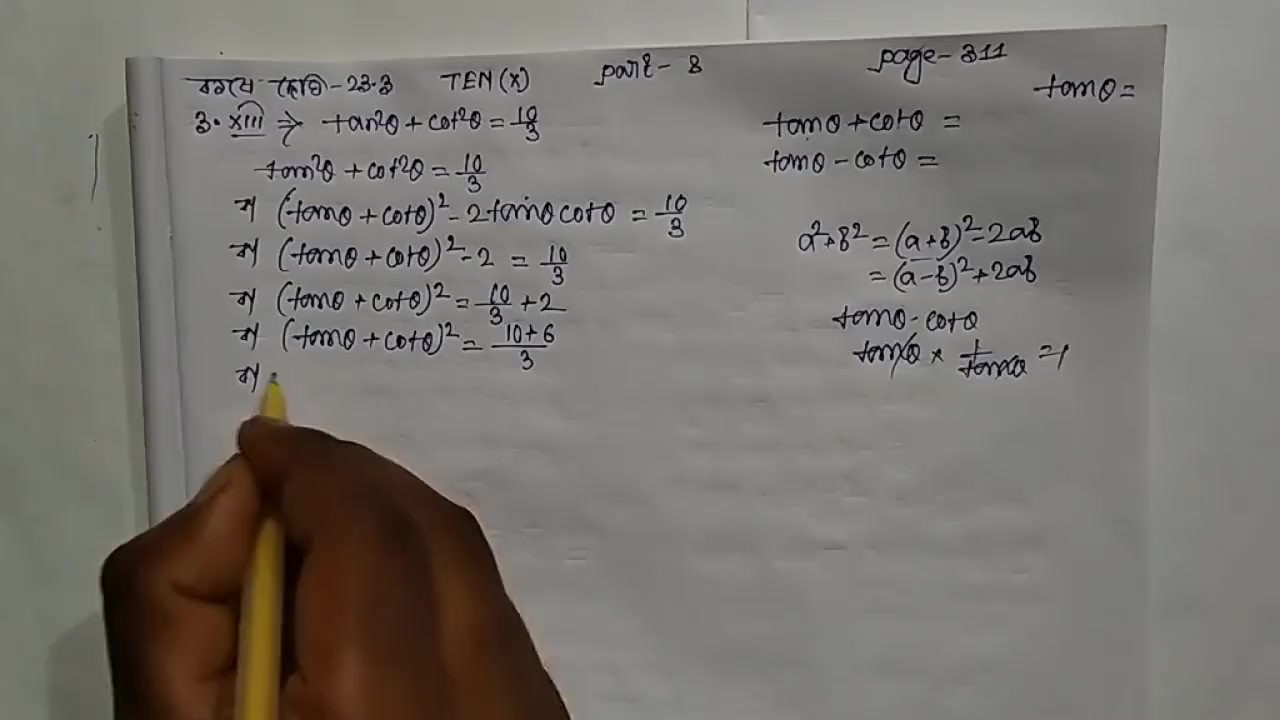 কষে দেখি - 23.3 TEN (X) part - 8 page - 311
3. xiii ⇒ tan²θ + cot²θ = 10/3
tan²θ + cot²θ = 10/3
বা (tanθ + cotθ)² - 2tanθcotθ = 10/3
বা (tanθ + cotθ)² - 2 = 10/3
বা (tanθ + cotθ)² = 10/3 + 2
বা (tanθ + cotθ)² = 10+6/3
বা
tanθ =
tanθ + cotθ =
tanθ - cotθ =
a² + b² = (a+b)² - 2ab
= (a-b)² + 2ab
tanθ · cotθ
tanθ × 1/tanθ = 1